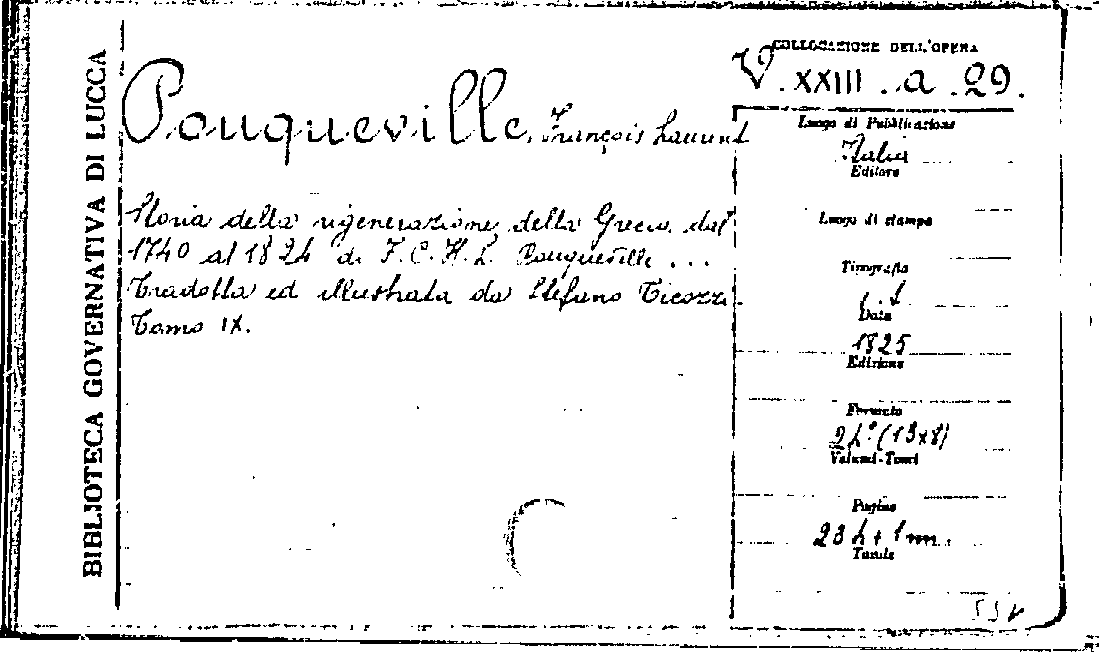 BIBLIOTECA GOVERNATIVA DI LUCCA
Pouqueville, François Laurent
Storia della rigenerazione della Grecia dal
1740 al 1824 di F. C. H. L. Pouqueville ...
Tradotta ed illustrata da Stefano Ticozzi.
Tomo IX.
COLLOCAZIONE DELL'OPERA
V. XXIII. a. 29.
Luogo di Pubblicazione
Italia
Editore
Luogo di stampa
Tipografia
Data
1825
Edizione
Formato
24° (13x8)
Volumi-Tomi
Pagine
234 + 1 nn.
Tavole